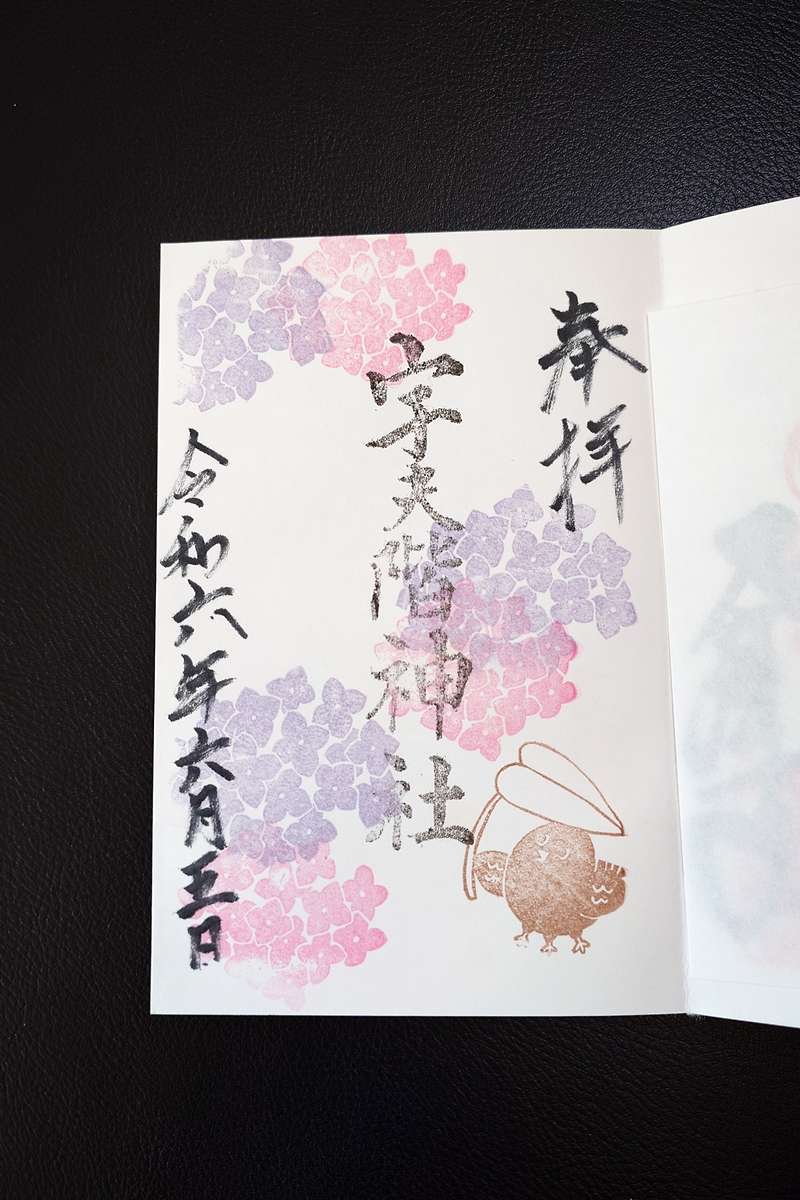 奉拝
宇夫階神社
令和六年六月五日